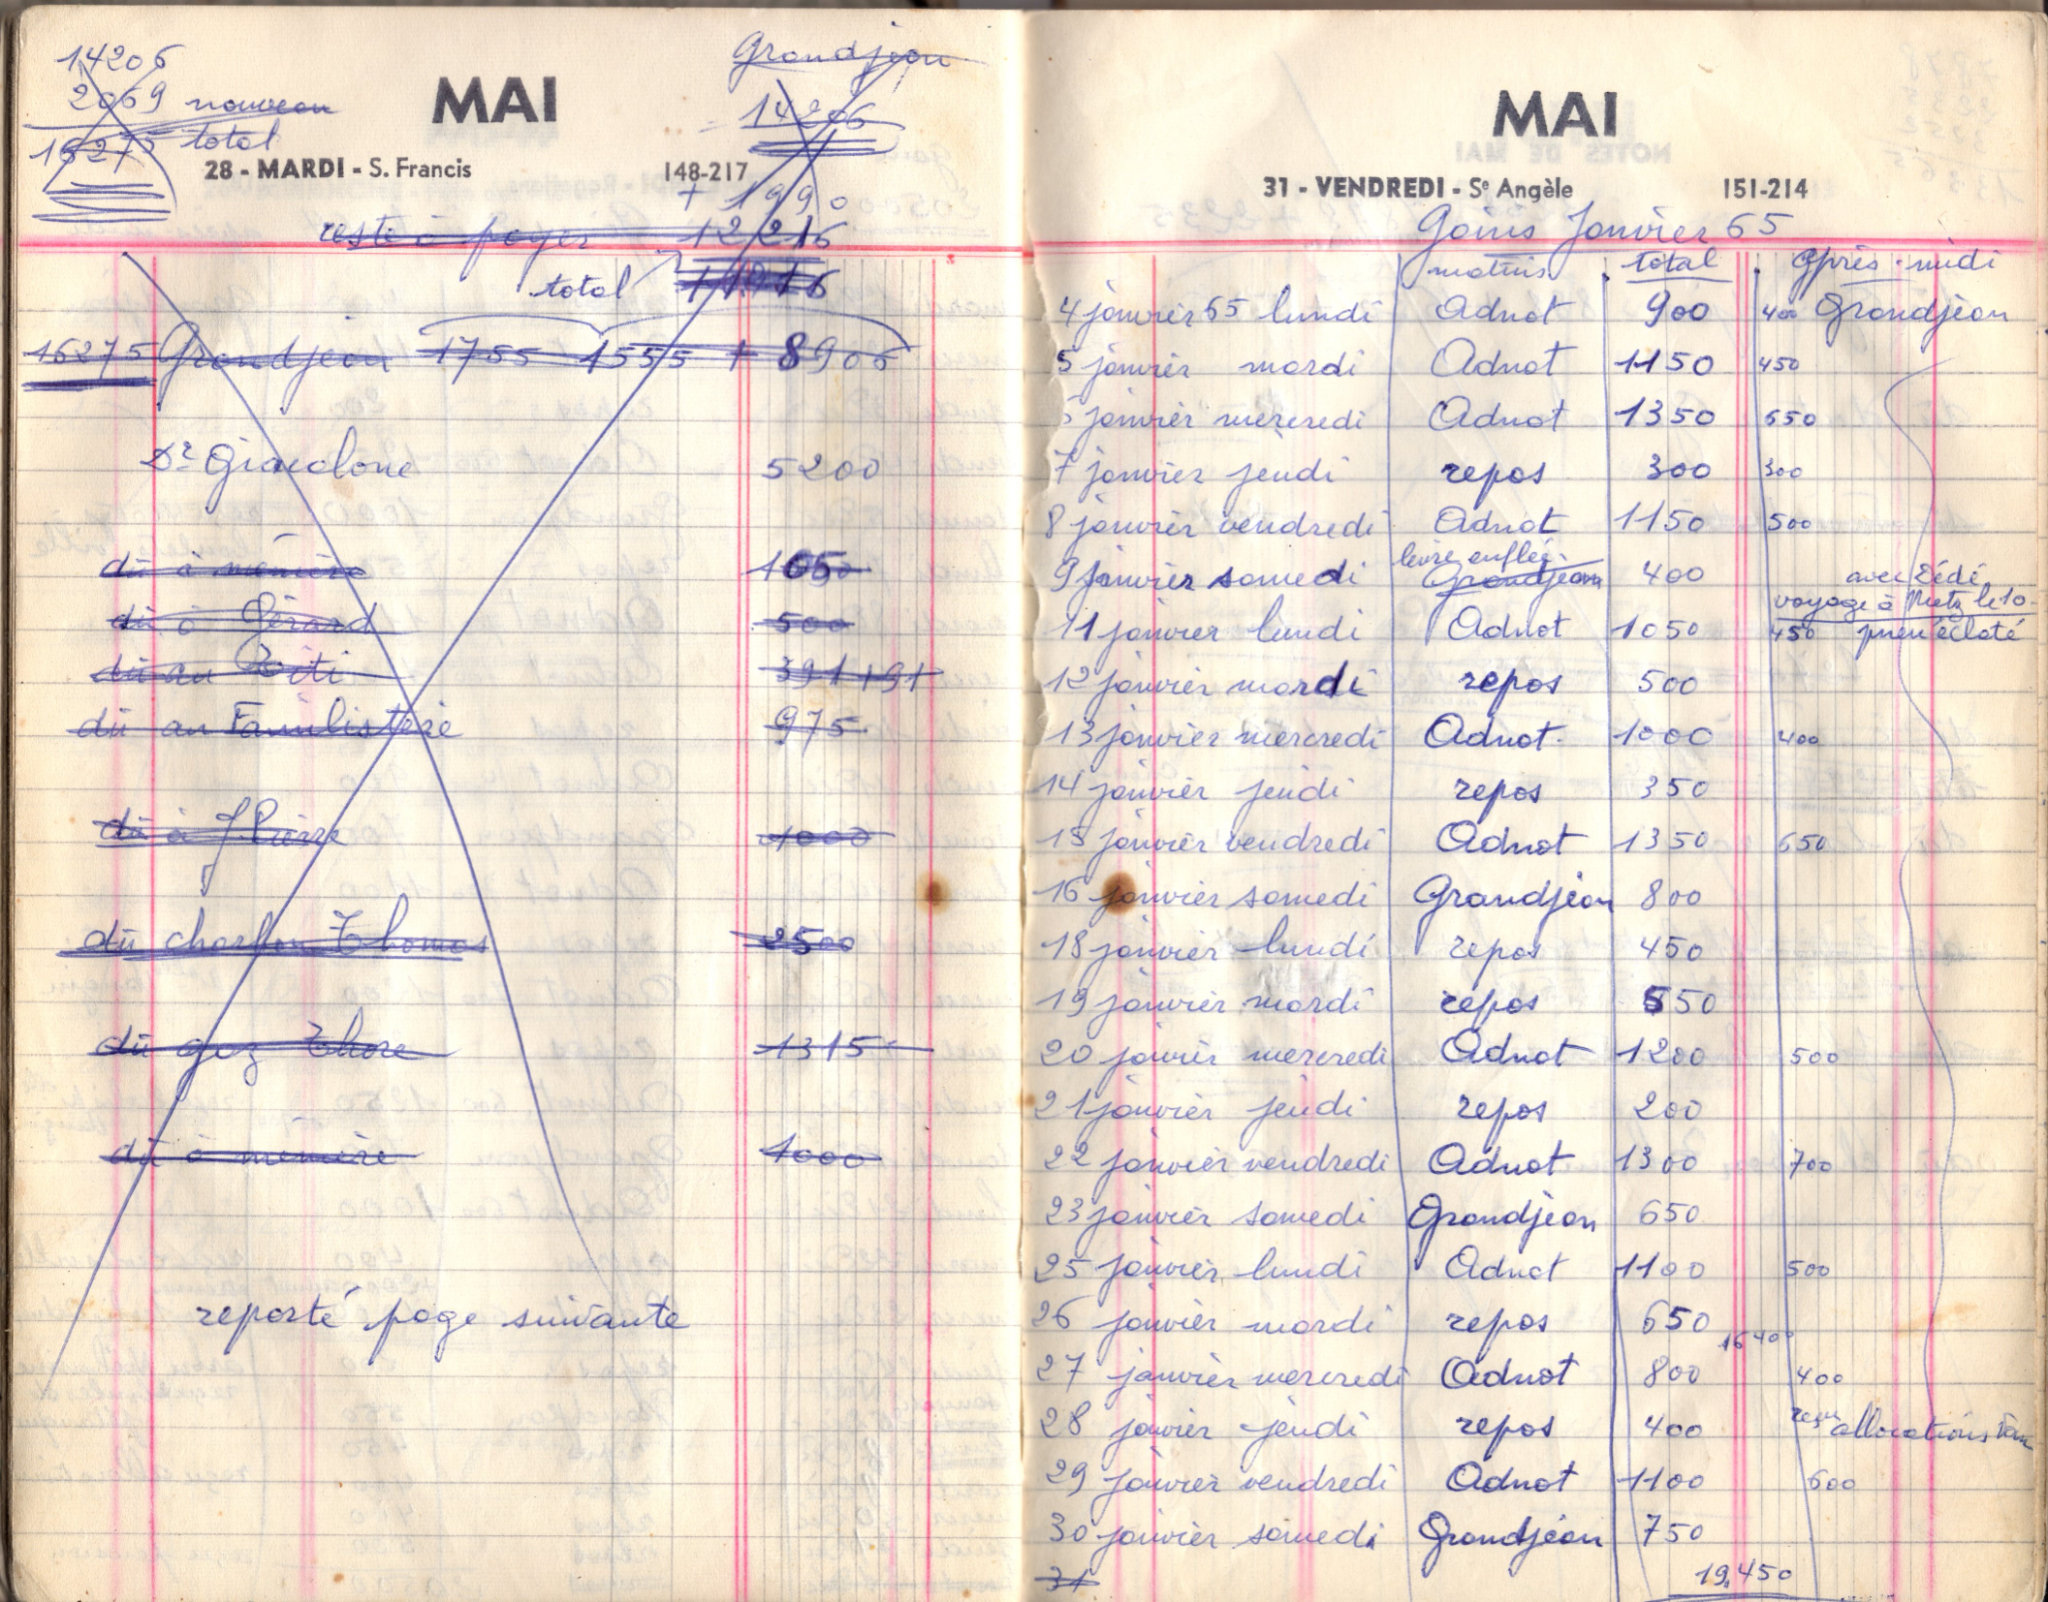 14206
2069 nouveau
16275 total
MAI
Grandjean
14206
28 - MARDI - S. Francis 148-217
+ 1990
reste à payer 12216
total
16275 Grandjean 1755 1555 + 8906
Dr Giaclone 5200
dû à mémère
dû à Gérard 500
dû au 391+91
dû au Familistère 975
dû à J. Pierre 1000
dû charbon Thomas 2500
dû gaz Thore 1315
dû à mémère 1000
reporté page suivante
MAI
31 - VENDREDI - Se Angèle 151-214
Gains Janvier 65
matins total après-midi
4 janvier 65 lundi Adnot 900 400 Grandjean
5 janvier mardi Adnot 1150 450
janvier mercredi Adnot 1350 650
7 janvier jeudi repos 300 300
8 janvier vendredi Adnot 1150 500
levre enflée
9 janvier samedi Grandjean 400 avec Dédé
voyage à Metz le 10
11 janvier lundi Adnot 1050 450 pneu éclaté
12 janvier mardi repos 500
13 janvier mercredi Adnot 1000 400
14 janvier jeudi repos 350
15 janvier vendredi Adnot 1350 650
16 janvier samedi Grandjean 800
18 janvier lundi repos 450
19 janvier mardi repos 550
20 janvier mercredi Adnot 1200 500
21 janvier jeudi repos 200
22 janvier vendredi Adnot 1300 700
23 janvier samedi Grandjean 650
25 janvier lundi Adnot 1100 500
26 janvier mardi repos 650
16400
27 janvier mercredi Adnot 800 400
28 janvier jeudi repos 400 reçu allocations
29 janvier vendredi Adnot 1100 600
30 janvier samedi Grandjean 750
31 19,450